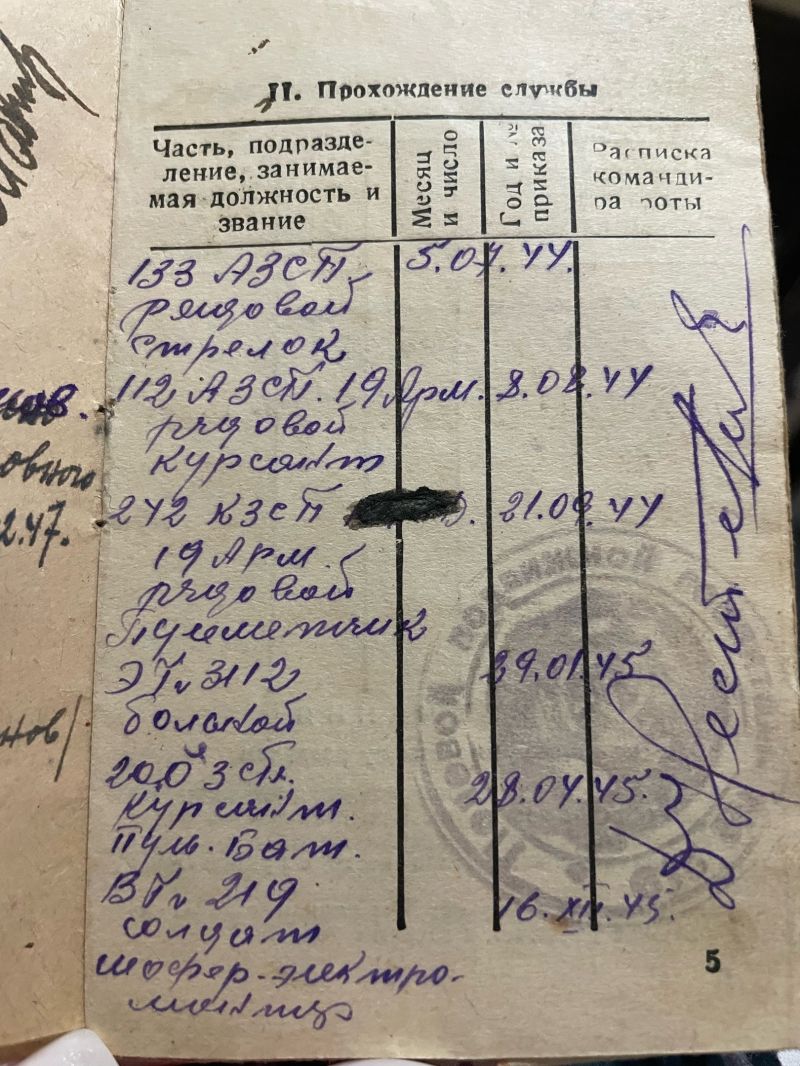 II. Прохождение службы
Часть, подразде-
ление, занимае-
мая должность и
звание
Месяц
и число
Год и №
приказа
Расписка
команди-
ра роты
133 АЗСП. 5.07.44.
рядовой
стрелок
112 АЗСП. 19 Арм. 8.08.44
рядовой
курсант
272 КЗСП 21.09.44
19 Арм.
рядовой
Пулеметчик
ЭГ. 3112 29.01.45
больной
200 ЗСП. 28.04.45.
курсант.
Пуль. Бат.
ВГ. 219 16.XII.45.
солдат
шофер-электро-
монтер
5
ов.
овного
2.47.
нов/